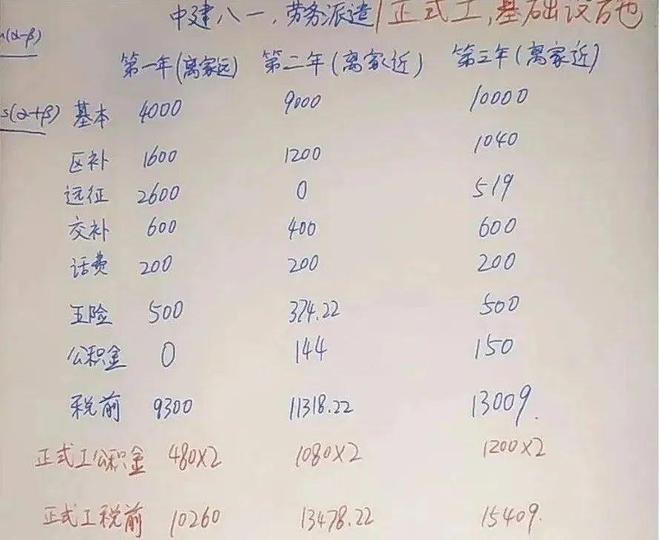 中建八一,劳务派遣/正式工,基础设看也
n(α-β)
第一年(离家远) 第二年(离家近) 第三年(离家近)
s(α+β) 基本 4000 9000 10000
区补 1600 1200 1040
远征 2600 0 519
交补 600 400 600
话费 200 200 200
五险 500 374.22 500
公积金 0 144 150
税前 9300 11318.22 13009.
正式工公积金 480×2 1080×2 1200×2
正式工税前 10260 13478.22 15409.